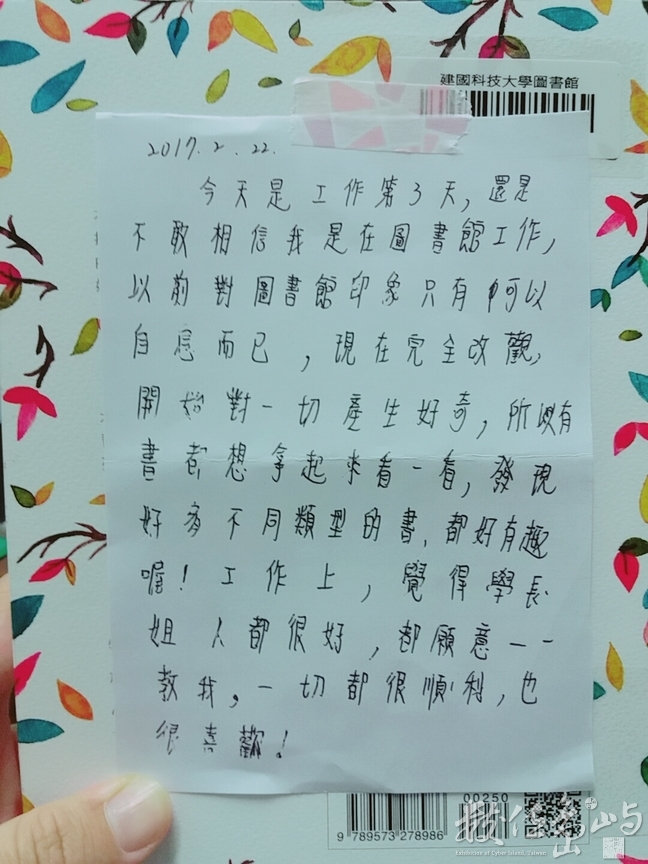 建國科技大學圖書館
2017.2.22.
今天是工作第3天，還是
不敢相信我是在圖書館工作，
以前對圖書館印象只有可以
自息而已，現在完全改觀，
開始對一切產生好奇，所以有
書都想拿起來看一看，發現
好多不同類型的書，都好有趣
喔！工作上，覺得學長
姐人都很好，都願意一一
教我，一切都很順利，也
很喜歡！
00250
9 789573 278986
Exhibition of Cyber Island, Taiwan